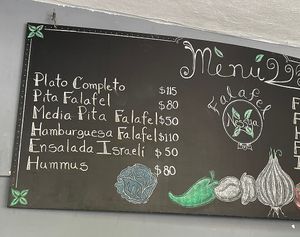 Menú
Plato Completo $115
Pita Falafel $80
Media Pita Falafel $50
Hamburguesa Falafel $110
Ensalada Israelí $50
Hummus $80
Falafel